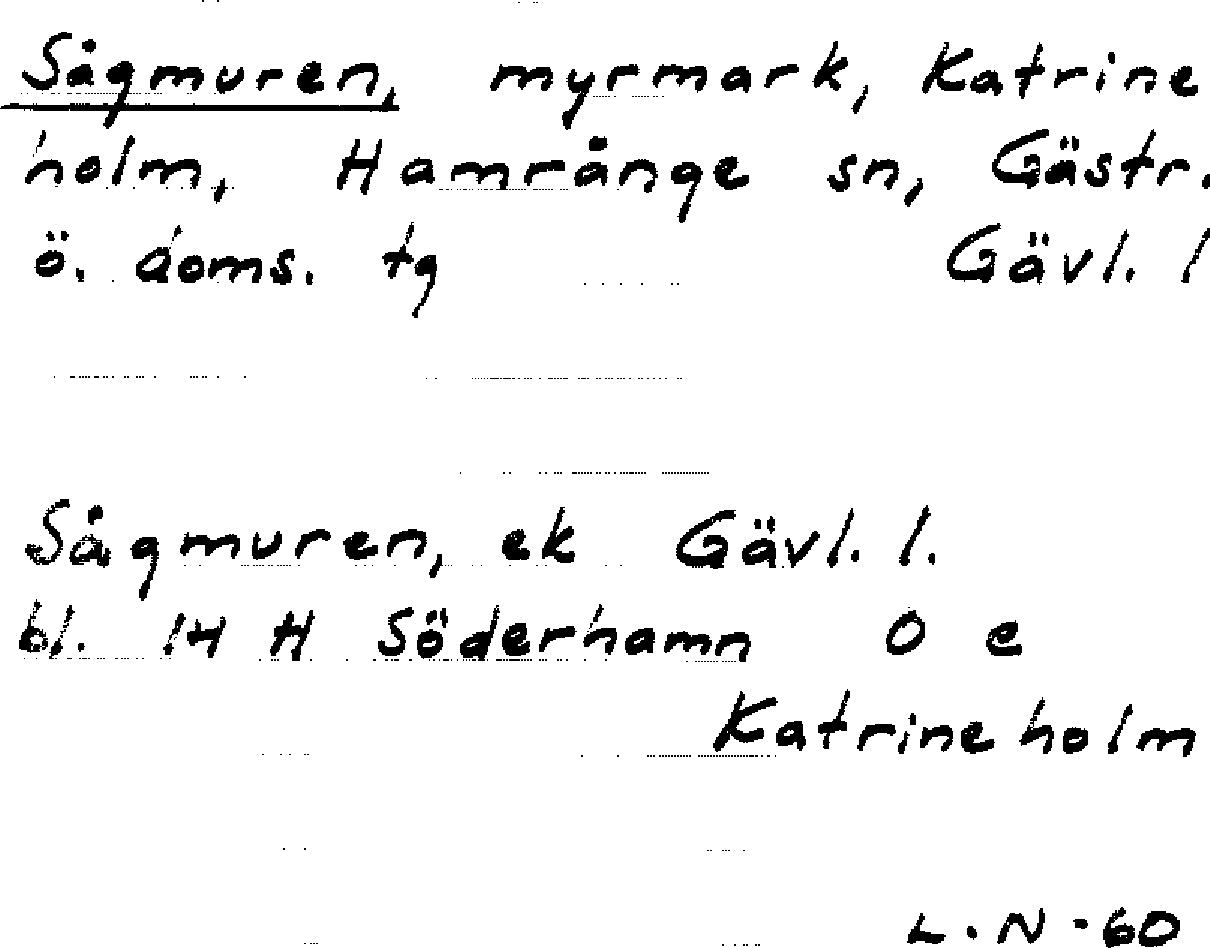 Sågmuren, myrmark, Katrine
holm, Hamrånge sn, Gästr.
ö. doms. tg Gävl. l
Sågmuren, ek Gävl. l.
bl. 14 H Söderhamn 0 e
Katrineholm
L.N-60